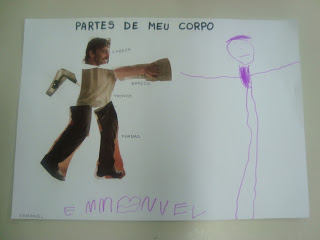 PARTES DE MEU CORPO
CABEÇA
BRAÇOS
TRONCO
PERNAS
EMMANUEL
EMMANUEL